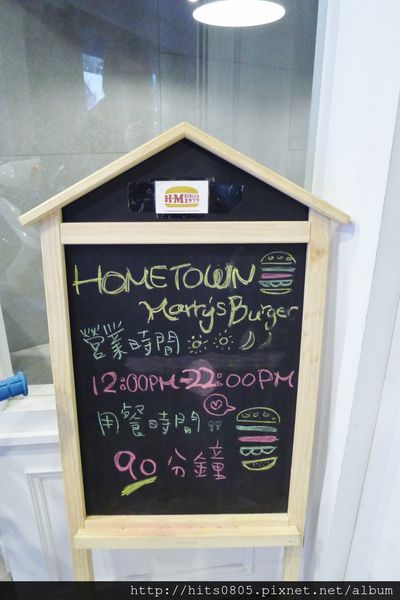 H·M BURGER 1979
HOMETOWN
Marry's Burger
營業時間
12:00PM-22:00PM
用餐時間
90分鐘
http://hits0805.pixnet.net/album